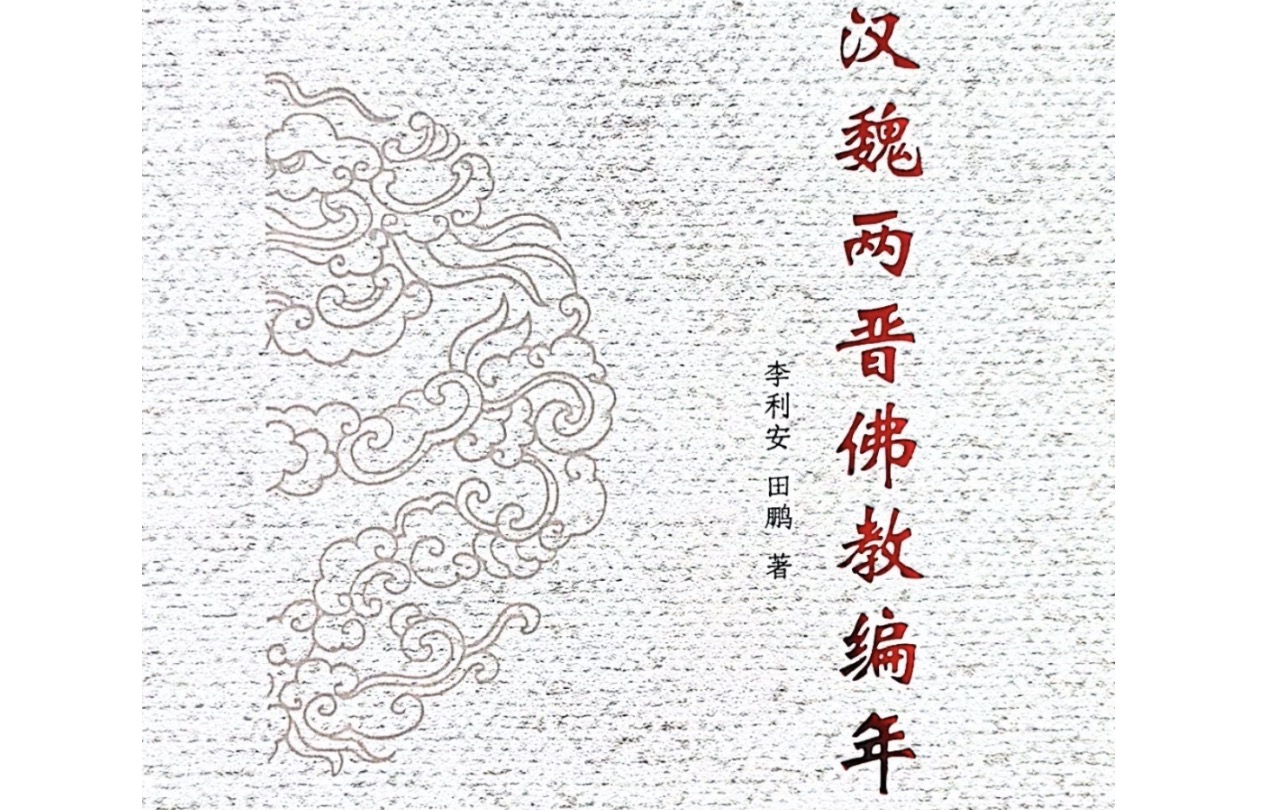 汉魏两晋佛教编年
李利安 田鹏 著